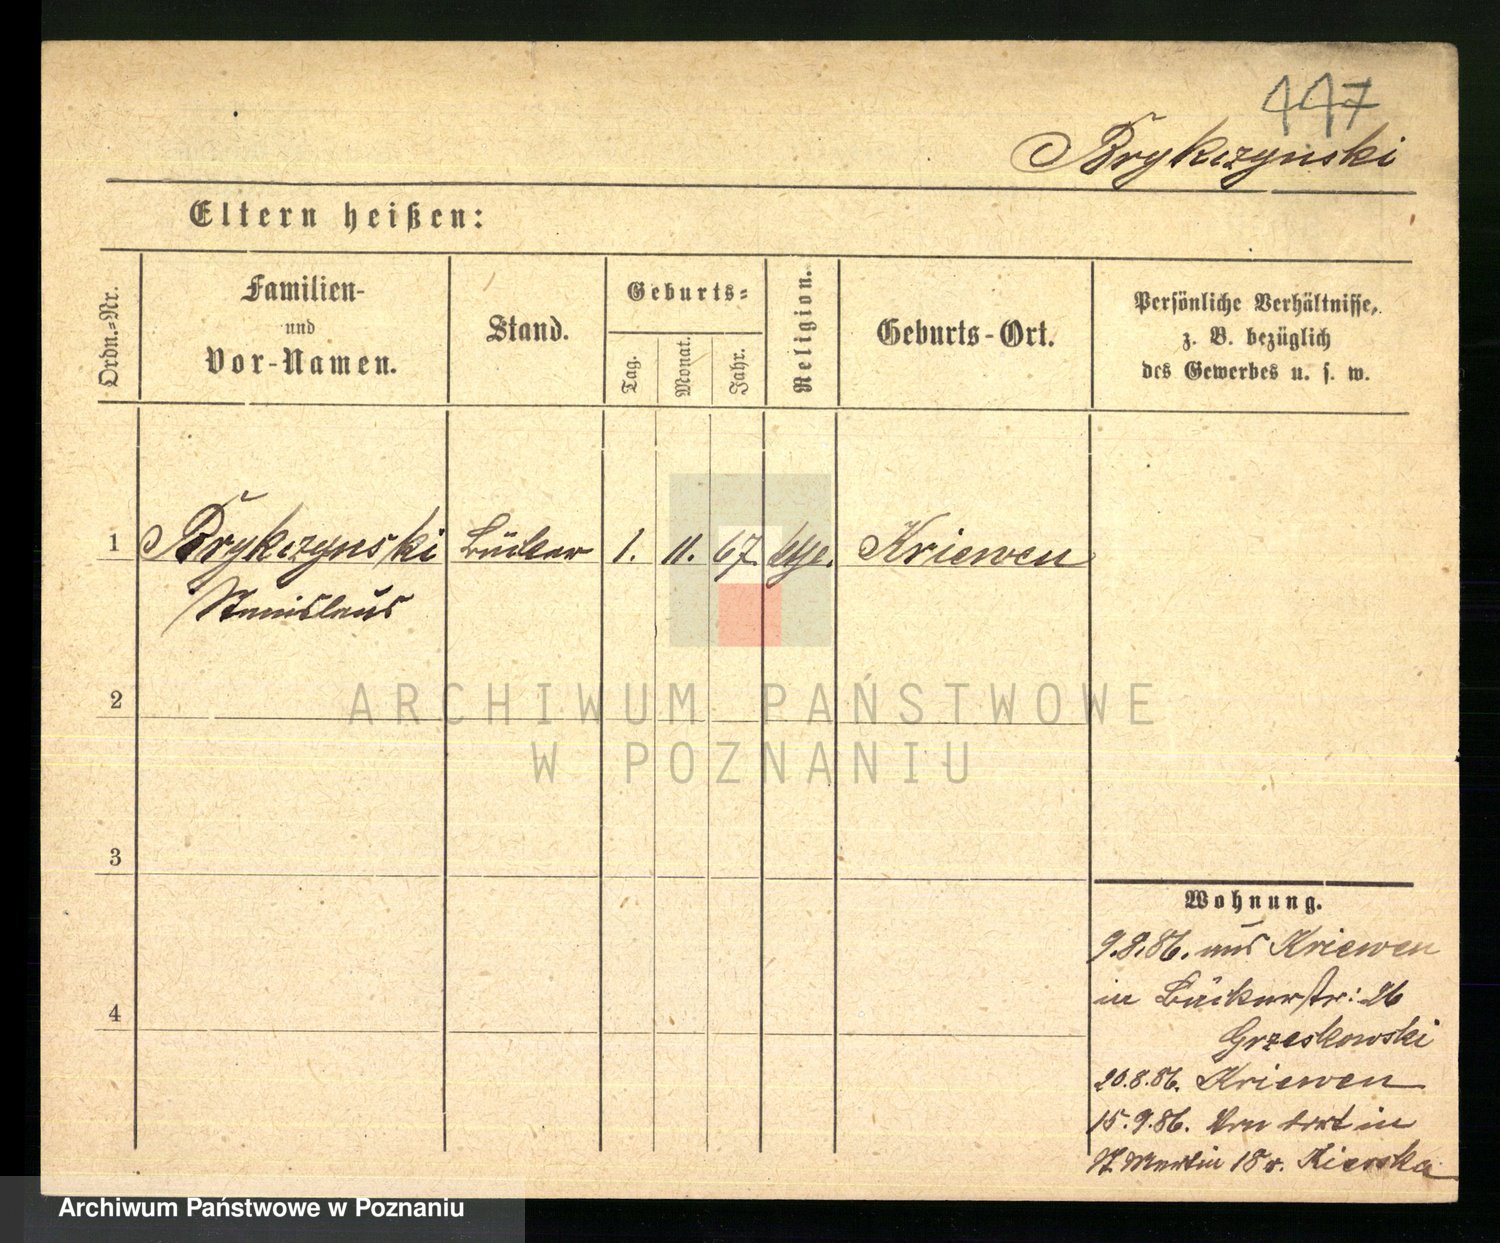 447
Brykczynski
Eltern heißen:
Ordn.=Nr.
Familien-
und
Vor-Namen.
Stand.
Geburts=
Tag.
Monat.
Jahr.
Religion.
Geburts-Ort.
Persönliche Verhältnisse,
z. B. bezüglich
des Gewerbes u. s. w.
1 Brykczynski Bäcker 1. 11. 67. Kriewen
Stanislaus
2
ARCHIWUM PAŃSTWOWE
W POZNANIU
3
Wohnung.
9.8.86. aus Kriewen
in Bäckerstr: 26
4
Grzeskowski
20.8.86. Kriewen
15.9.86. Von dort in
St. Martin 18 Kierska
Archiwum Państwowe w Poznaniu